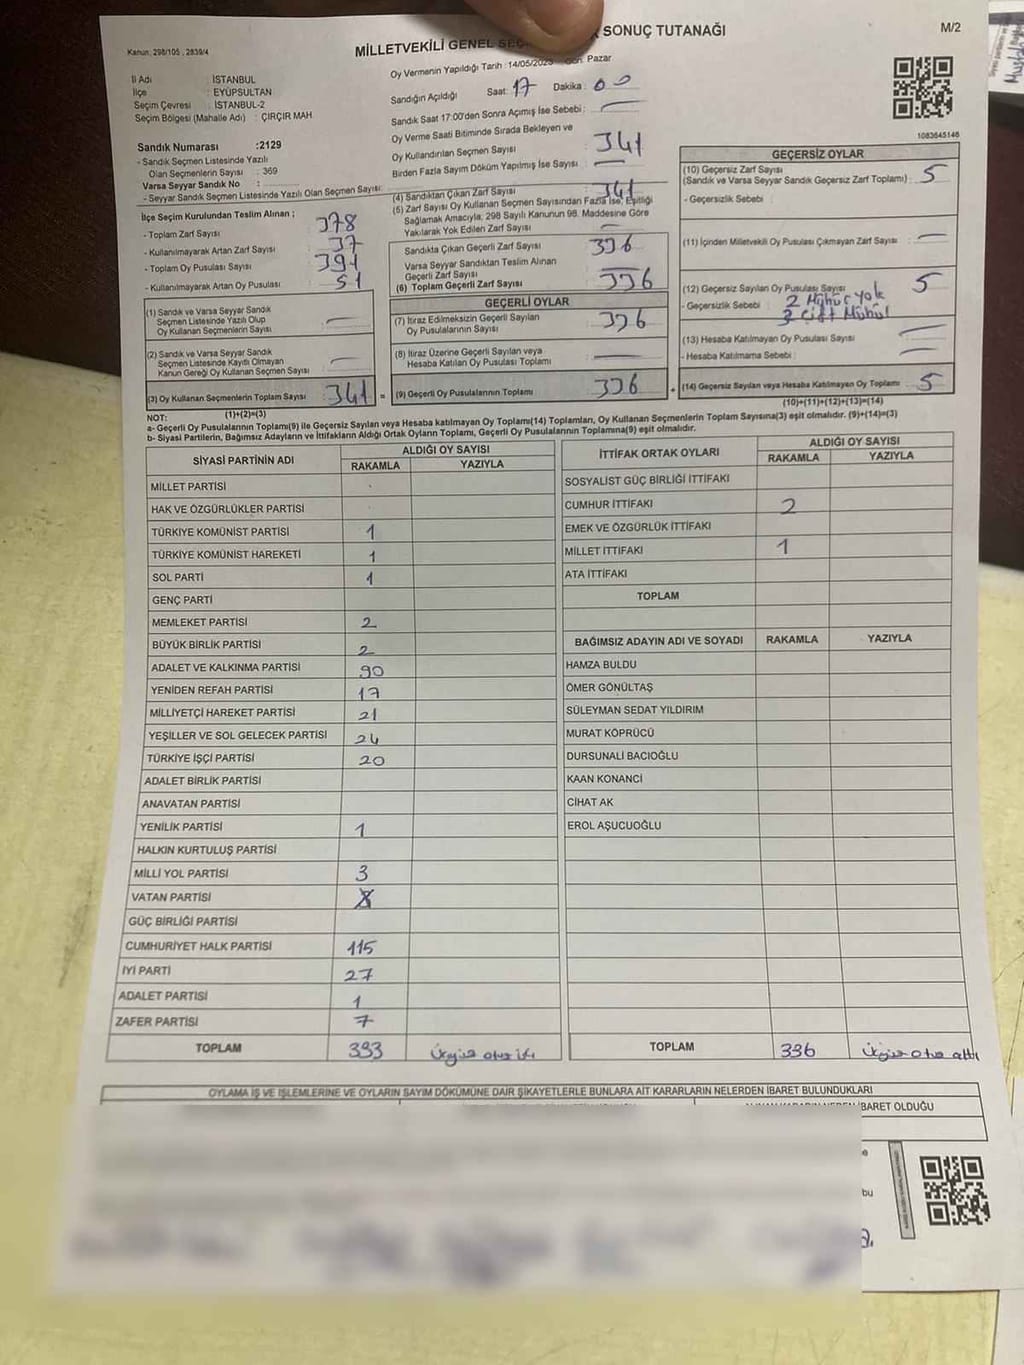 M/2
Kanun: 298/105, 2839/4
MİLLETVEKİLİ GENEL SEÇ SONUÇ TUTANAĞI
İl Adı : İSTANBUL
İlçe : EYÜPSULTAN
Seçim Çevresi : İSTANBUL-2
Seçim Bölgesi (Mahalle Adı) : ÇIRÇIR MAH
Oy Vermenin Yapıldığı Tarih :14/05/2023 Gün: Pazar
Sandığın Açıldığı Saat: 17 Dakika : 00
Sandık Saat 17:00'den Sonra Açımış İse Sebebi: —
Oy Verme Saati Bitiminde Sırada Bekleyen ve
Oy Kullandırılan Seçmen Sayısı : 341
Birden Fazla Sayım Döküm Yapılmış İse Sayısı : —
1083645146
Sandık Numarası :2129
- Sandık Seçmen Listesinde Yazılı
Olan Seçmenlerin Sayısı : 369
Varsa Seyyar Sandık No :
- Seyyar Sandık Seçmen Listesinde Yazılı Olan Seçmen Sayısı:
İlçe Seçim Kurulundan Teslim Alınan ;
- Toplam Zarf Sayısı 378
- Kullanılmayarak Artan Zarf Sayısı 37
- Toplam Oy Pusulası Sayısı 391
- Kullanılmayarak Artan Oy Pusulası 51
(1) Sandık ve Varsa Seyyar Sandık
Seçmen Listesinde Yazılı Olup
Oy Kullanan Seçmenlerin Sayısı : —
(2) Sandık ve Varsa Seyyar Sandık
Seçmen Listesinde Kayıtlı Olmayan
Kanun Gereği Oy Kullanan Seçmen Sayısı : —
(3) Oy Kullanan Seçmenlerin Toplam Sayısı : 341
(1)+(2)=(3)
(4) Sandıktan Çıkan Zarf Sayısı : 341
(5) Zarf Sayısı Oy Kullanan Seçmen Sayısından Fazla İse, Eşitliği
Sağlamak Amacıyla; 298 Sayılı Kanunun 98. Maddesine Göre
Yakılarak Yok Edilen Zarf Sayısı : —
Sandıkta Çıkan Geçerli Zarf Sayısı : 336
Varsa Seyyar Sandıktan Teslim Alınan
Geçerli Zarf Sayısı : —
(6) Toplam Geçerli Zarf Sayısı : 336
GEÇERLİ OYLAR
(7) İtiraz Edilmeksizin Geçerli Sayılan
Oy Pusulalarının Sayısı : 336
(8) İtiraz Üzerine Geçerli Sayılan veya
Hesaba Katılan Oy Pusulası Toplamı : —
= (9) Geçerli Oy Pusulalarının Toplamı : 336
GEÇERSİZ OYLAR
(10) Geçersiz Zarf Sayısı
(Sandık ve Varsa Seyyar Sandık Geçersiz Zarf Toplamı) : 5
- Geçersizlik Sebebi :
(11) İçinden Milletvekili Oy Pusulası Çıkmayan Zarf Sayısı : —
(12) Geçersiz Sayılan Oy Pusulası Sayısı : 5
- Geçersizlik Sebebi : 2 Mühür yok
3 Çift Mühür
(13) Hesaba Katılmayan Oy Pusulası Sayısı : —
- Hesaba Katılmama Sebebi : —
+ (14) Geçersiz Sayılan veya Hesaba Katılmayan Oy Toplamı : 5
(10)+(11)+(12)+(13)=(14)
NOT:
a- Geçerli Oy Pusulalarının Toplamı(9) ile Geçersiz Sayılan veya Hesaba katılmayan Oy Toplamı(14) Toplamları, Oy Kullanan Seçmenlerin Toplam Sayısına(3) eşit olmalıdır. (9)+(14)=(3)
b- Siyasi Partilerin, Bağımsız Adayların ve İttifakların Aldığı Ortak Oyların Toplamı, Geçerli Oy Pusulalarının Toplamına(9) eşit olmalıdır.
SİYASİ PARTİNİN ADI ALDIĞI OY SAYISI
RAKAMLA YAZIYLA
MİLLET PARTİSİ
HAK VE ÖZGÜRLÜKLER PARTİSİ
TÜRKİYE KOMÜNİST PARTİSİ 1
TÜRKİYE KOMÜNİST HAREKETİ 1
SOL PARTİ 1
GENÇ PARTİ
MEMLEKET PARTİSİ 2
BÜYÜK BİRLİK PARTİSİ 2
ADALET VE KALKINMA PARTİSİ 90
YENİDEN REFAH PARTİSİ 17
MİLLİYETÇİ HAREKET PARTİSİ 21
YEŞİLLER VE SOL GELECEK PARTİSİ 24
TÜRKİYE İŞÇİ PARTİSİ 20
ADALET BİRLİK PARTİSİ
ANAVATAN PARTİSİ
YENİLİK PARTİSİ 1
HALKIN KURTULUŞ PARTİSİ
MİLLİ YOL PARTİSİ 3
VATAN PARTİSİ
GÜÇ BİRLİĞİ PARTİSİ
CUMHURİYET HALK PARTİSİ 115
İYİ PARTİ 27
ADALET PARTİSİ 1
ZAFER PARTİSİ 7
TOPLAM 333
İTTİFAK ORTAK OYLARI ALDIĞI OY SAYISI
RAKAMLA YAZIYLA
SOSYALİST GÜÇ BİRLİĞİ İTTİFAKI
CUMHUR İTTİFAKI 2
EMEK VE ÖZGÜRLÜK İTTİFAKI
MİLLET İTTİFAKI 1
ATA İTTİFAKI
TOPLAM
BAĞIMSIZ ADAYIN ADI VE SOYADI RAKAMLA YAZIYLA
HAMZA BULDU
ÖMER GÖNÜLTAŞ
SÜLEYMAN SEDAT YILDIRIM
MURAT KÖPRÜCÜ
DURSUNALİ BACIOĞLU
KAAN KONANCİ
CİHAT AK
EROL AŞUCUOĞLU
TOPLAM 336 üçyüz otuz altı
OYLAMA İŞ VE İŞLEMLERİNE VE OYLARIN SAYIM DÖKÜMÜNE DAİR ŞİKAYETLERLE BUNLARA AİT KARARLARIN NELERDEN İBARET BULUNDUKLARI
İBARET OLDUĞU